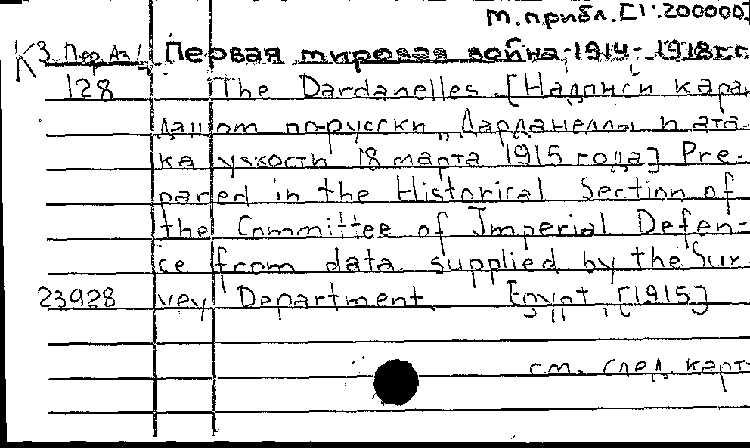 т. прибл. [1:200000]
К3 Пер. Аз/ Первая мировая война, 1914-1918 гг.
128 The Dardanelles [Надписи кара
дашом по-русски „Дарданеллы и ата-
ка узкости 18 марта 1915 года] Pre-
pared in the Historical Section of
the Committee of Imperial Defen-
ce from data supplied by the Sur
23928 vey Department Egypt, [1915]
см. след. карт